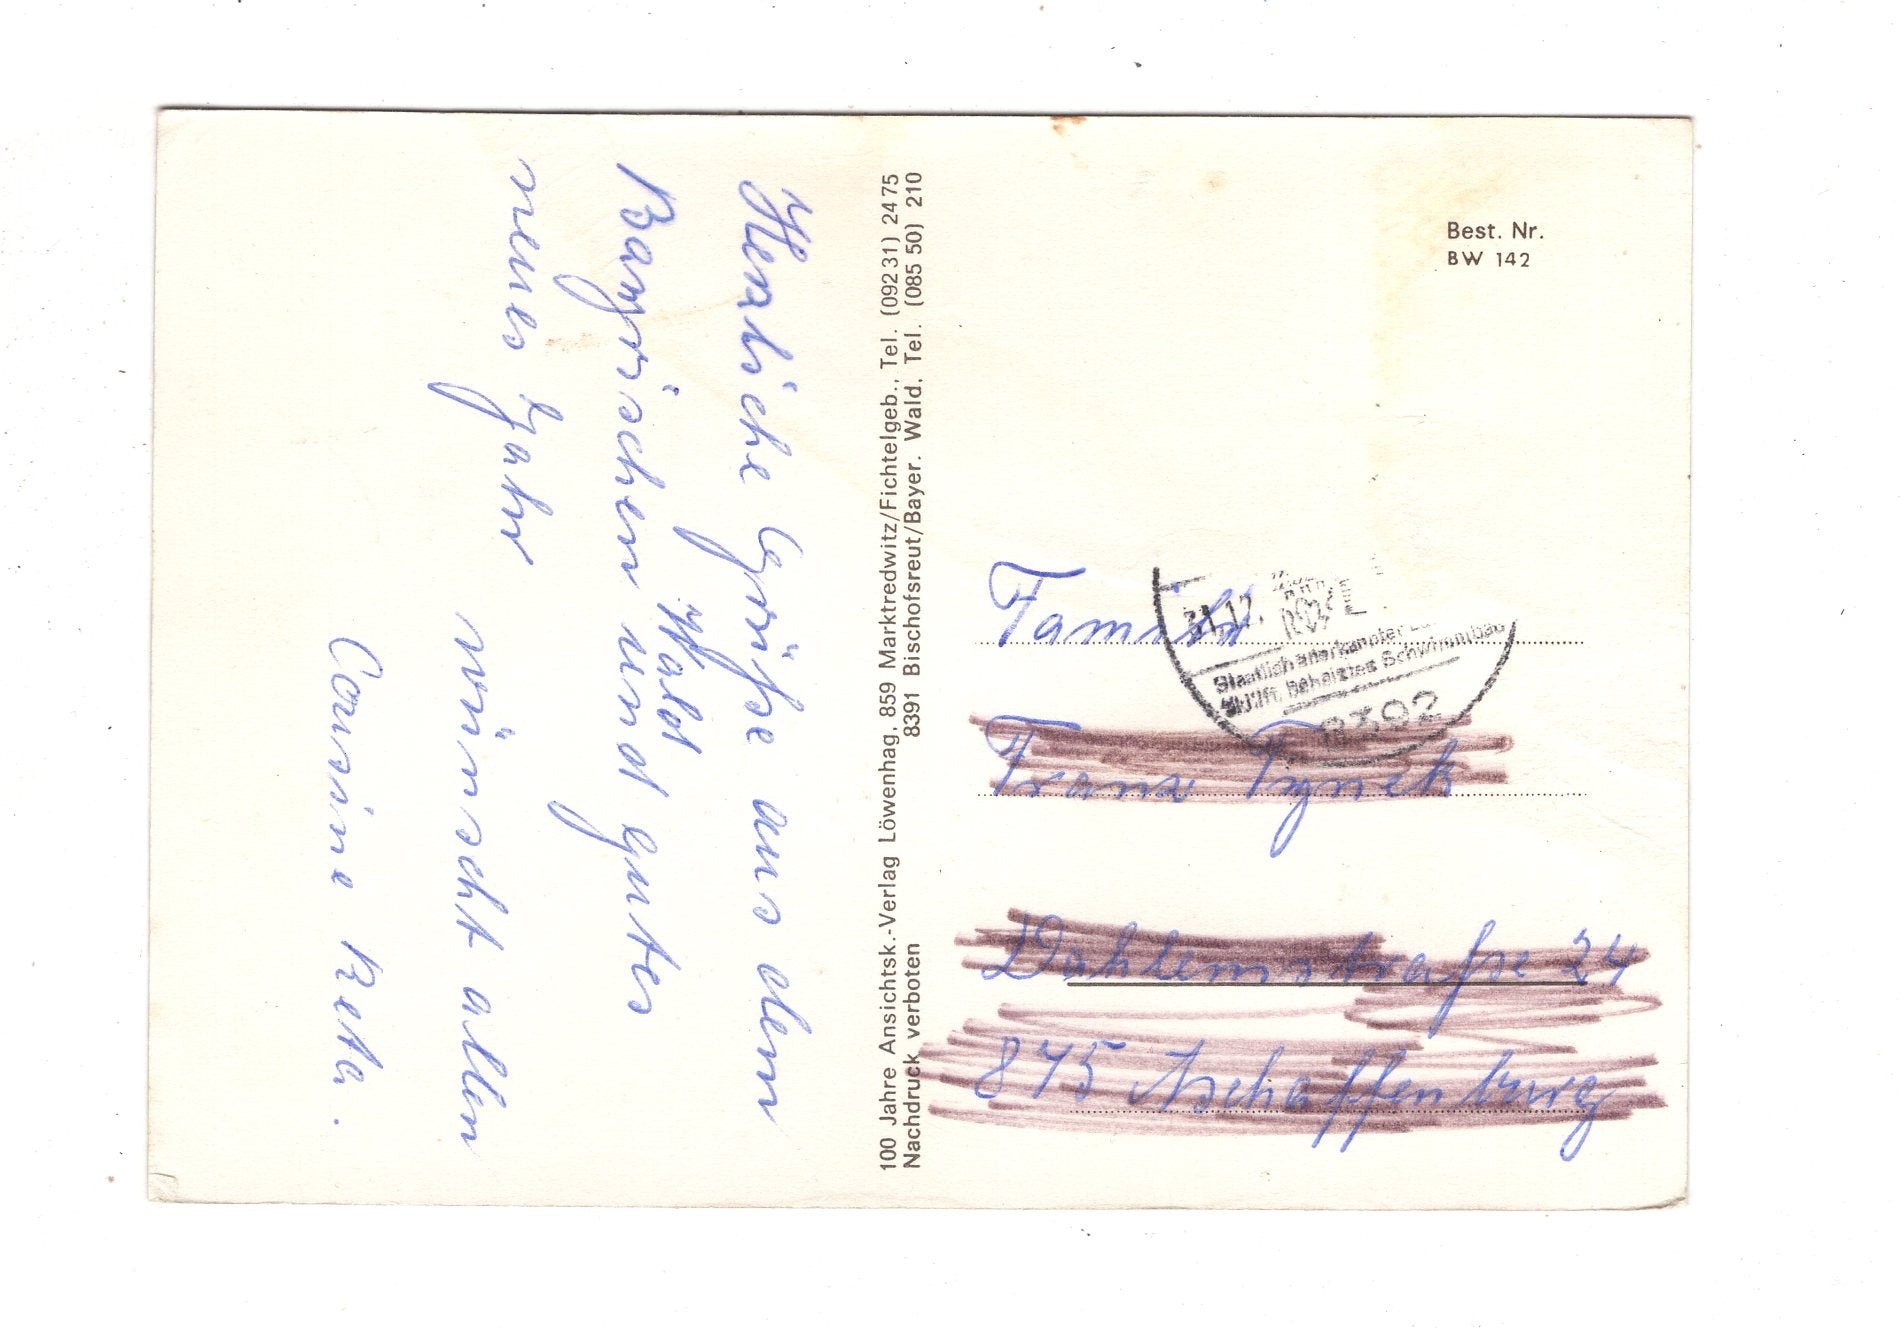 Herzliche Grüße aus dem
Bayrischen Wald und gutes
neues Jahr
wünscht allen
Cousine Reta.
100 Jahre Ansichtsk.-Verlag Löwenhag, 859 Marktredwitz/Fichtelgeb., Tel. (09231) 2475
Nachdruck verboten 8391 Bischofsreut/Bayer. Wald, Tel. (085 50) 210
Best. Nr.
BW 142
31.12.
Staatlich anerkannter
beheiztes Schwimmbad
8392
Familie
Franz Tynek
Dahlemstraße 24
875 Aschaffenburg